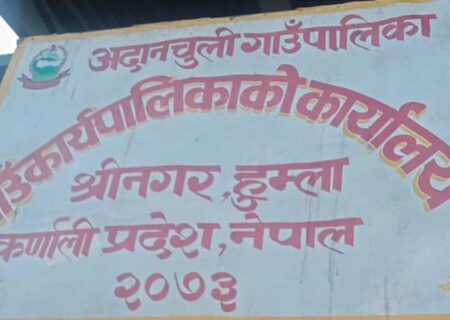 अदानचुली गाउँपालिका
गाउँकार्यपालिकाको कार्यालय
श्रीनगर, हुम्ला
कर्णाली प्रदेश, नेपाल
२०७३